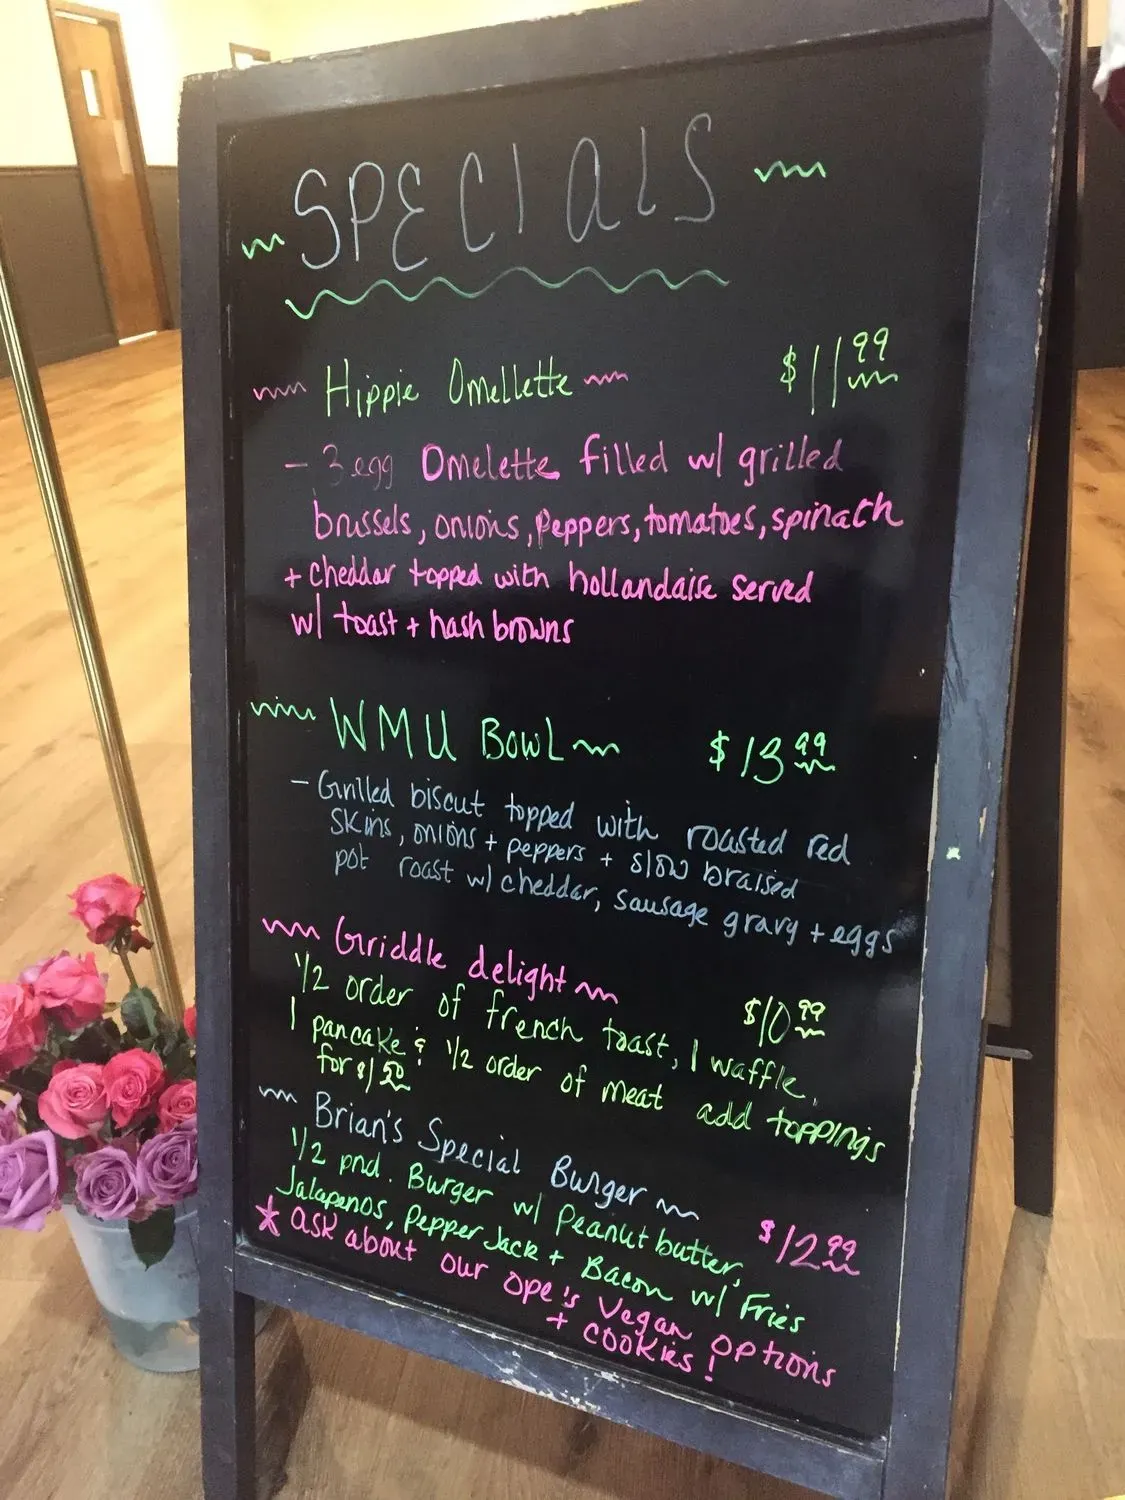 SPECIALS
Hippie Omellette $11.99
- 3 egg Omelette filled w/ grilled
brussels, onions, peppers, tomatoes, spinach
+ cheddar topped with hollandaise served
w/ toast + hash browns
WMU BOWL $13.99
- Grilled biscut topped with roasted red
skins, onions + peppers + slow braised
pot roast w/ cheddar, sausage gravy + eggs
Griddle delight $10.99
1/2 order of french toast, 1 waffle,
1 pancake & 1/2 order of meat add toppings
for $1.50
Brian's Special Burger $12.99
1/2 pnd. Burger w/ Peanut butter,
Jalapenos, Pepper Jack + Bacon w/ Fries
* ask about our ope's Vegan options
+ cookies!